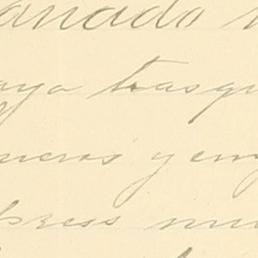 anado
aya trasqu
neros y em
press mu